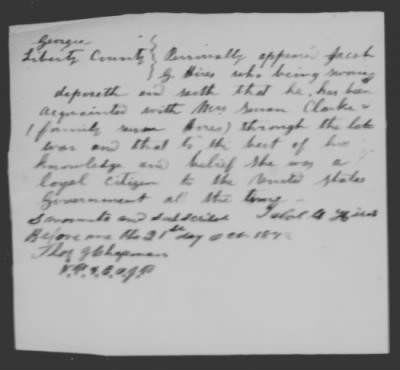 Georgia
Liberty County } Personally appears Jacob
G. Hires who being sworn
deposeth and saith that he has been
acquainted with Mrs Susan Clarke
(formily susan Hires) through the late
war and that to the best of his
knowledge and belief she was a
loyal citizen to the United states
Government at the time
Swornto and Subscribed Jacob G Hires
Before me this 21st day Oct 187
Thos J Chapman